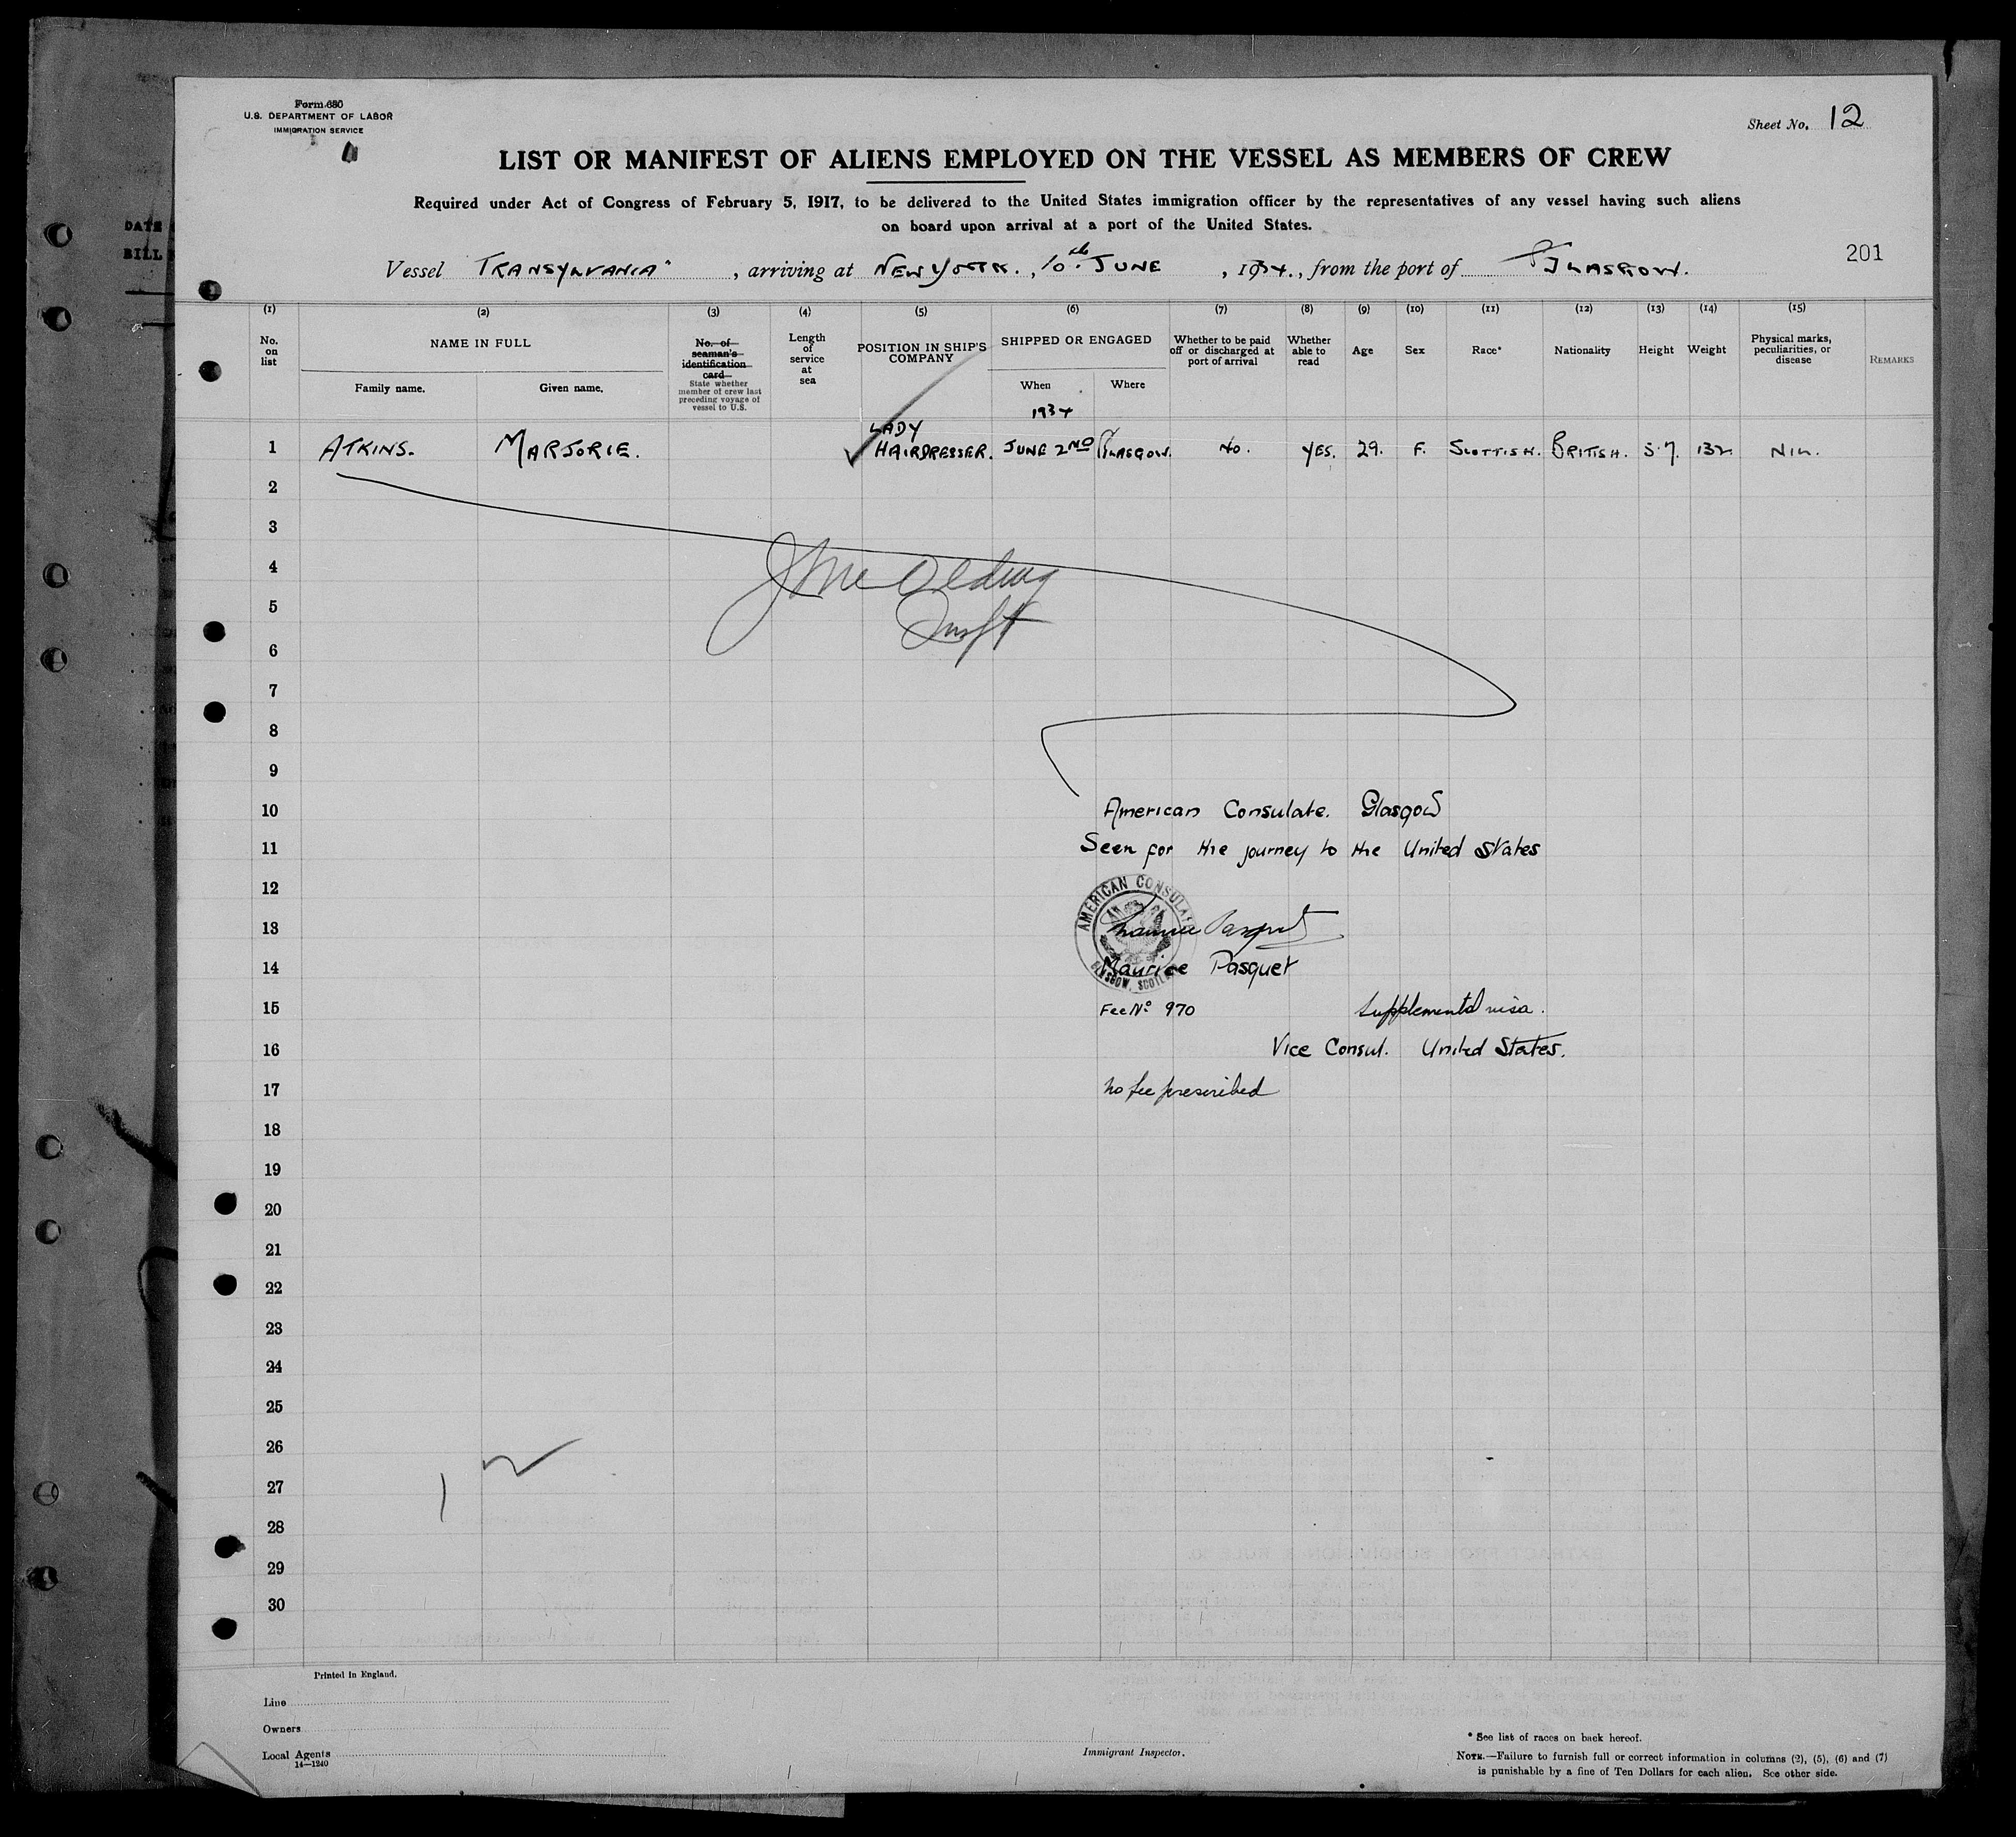 Form 680
U.S. DEPARTMENT OF LABOR
IMMIGRATION SERVICE
Sheet No. 12
LIST OR MANIFEST OF ALIENS EMPLOYED ON THE VESSEL AS MEMBERS OF CREW
Required under Act of Congress of February 5, 1917, to be delivered to the United States immigration officer by the representatives of any vessel having such aliens
on board upon arrival at a port of the United States.
Vessel TRANSYLVANIA", arriving at NEW YORK., 10th JUNE, 1934., from the port of GLASGOW.
201
DATE
BILL
(1) (2) (3) (4) (5) (6) (7) (8) (9) (10) (11) (12) (13) (14) (15)
No. on list
NAME IN FULL
Family name. Given name.
No. of seaman's identification card
State whether member of crew last preceding voyage of vessel to U.S.
Length of service at sea
POSITION IN SHIP'S COMPANY
SHIPPED OR ENGAGED
When Where
Whether to be paid off or discharged at port of arrival
Whether able to read
Age
Sex
Race*
Nationality
Height
Weight
Physical marks, peculiarities, or disease
REMARKS
1934
LADY
1 ATKINS. MARJORIE. HAIRDRESSER. JUNE 2ND GLASGOW. NO. YES. 29. F. SCOTTISH. BRITISH. 5.7. 132 NIL.
2
3
4
5
6
7
8
9
10 American Consulate. Glasgow
11 Seen for the journey to the United States
12
AMERICAN CONSULATE
GLASGOW, SCOTLAND
13 Maurice Pasquet
14 Maurice Pasquet
15 Fee No 970 Supplemental visa.
16 Vice Consul. United States.
17 No fee prescribed
18
19
20
21
22
23
24
25
26
27
28
29
30
Printed in England.
Line
Owners
Local Agents
14—1240
Immigrant Inspector.
* See list of races on back hereof.
NOTE.—Failure to furnish full or correct information in columns (2), (5), (6) and (7)
is punishable by a fine of Ten Dollars for each alien. See other side.